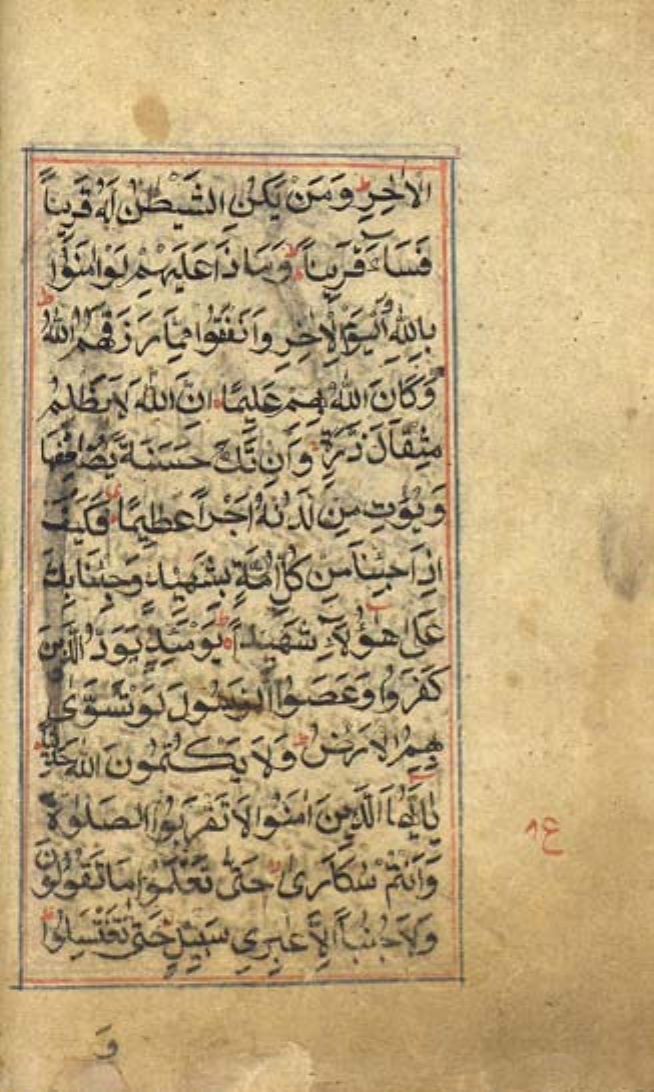 الْاٰخِرِ ط وَمَنْ يَكُنِ الشَّيْطٰنُ لَهٗ قَرِيْنًا
فَسَآءَ قَرِيْنًا وَمَاذَا عَلَيْهِمْ لَوْ اٰمَنُوْا
بِاللّٰهِ وَالْيَوْمِ الْاٰخِرِ وَاَنْفَقُوْا مِمَّا رَزَقَهُمُ اللّٰهُ ط
وَكَانَ اللّٰهُ بِهِمْ عَلِيْمًا اِنَّ اللّٰهَ لَا يَظْلِمُ
مِثْقَالَ ذَرَّةٍ وَاِنْ تَكُ حَسَنَةً يُّضَاعِفْهَا
وَيُؤْتِ مِنْ لَّدُنْهُ اَجْرًا عَظِيْمًا فَكَيْفَ
اِذَا جِئْنَا مِنْ كُلِّ اُمَّةٍ بِشَهِيْدٍ وَجِئْنَا بِكَ
عَلٰى هٰٓؤُلَآءِ شَهِيْدًا يَوْمَئِذٍ يَوَدُّ الَّذِيْنَ
كَفَرُوْا وَعَصَوُا الرَّسُوْلَ لَوْ تُسَوّٰى
بِهِمُ الْاَرْضُ ط وَلَا يَكْتُمُوْنَ اللّٰهَ حَدِيْثًا
يٰٓاَيُّهَا الَّذِيْنَ اٰمَنُوْا لَا تَقْرَبُوا الصَّلٰوةَ
وَاَنْتُمْ سُكَارٰى حَتّٰى تَعْلَمُوْا مَا تَقُوْلُوْنَ
وَلَا جُنُبًا اِلَّا عَابِرِيْ سَبِيْلٍ حَتّٰى تَغْتَسِلُوْا ط
ع
وَ